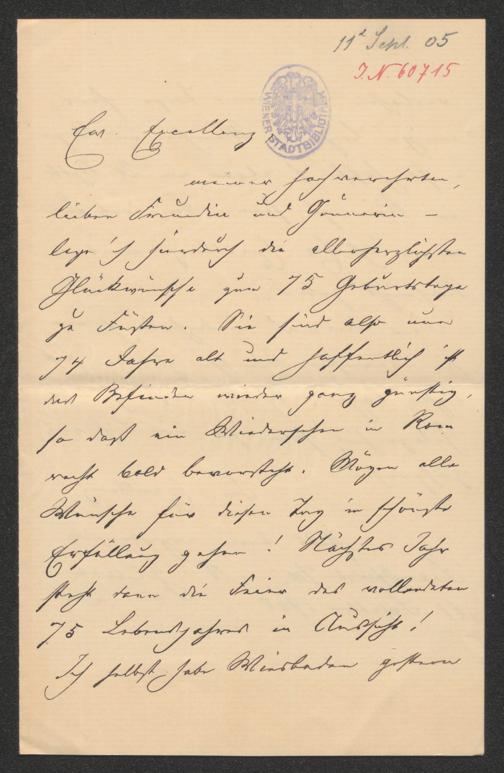 11ᵗ Sept. 05
I. N. 60715
WIENER STADTBIBLIOTHEK
Ew. Excellenz
meiner hochverehrten,
lieben Freundin und Gönnerin –
lege ich hierdurch die allerherzlichsten
Glückwünsche zum 75 Geburtstage
zu Füßen. Sie sind also nun
74 Jahre alt und hoffentlich ist
das Befinden wieder ganz günstig,
so daß ein Wiedersehen in Rom
recht bald bevorsteht. Mögen alle
Wünsche für diesen Tag in schönste
Erfüllung gehen! Nächstes Jahr
steht dann die Feier des vollendeten
75 Lebensjahres in Aussicht!
Ich selbst habe Wiesbaden gestern